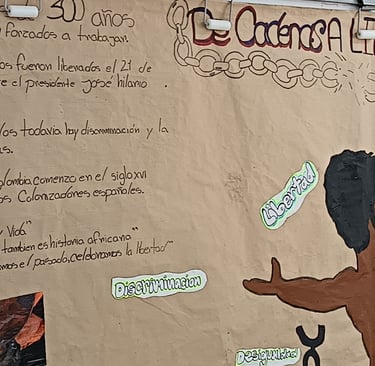 300 años
forzados a trabajar.
os fueron liberados el 21 de
e el presidente josé hilario
los todavia hay discriminación y la
as.
olombia comenzo en el siglo xvi
os Colonzadores españoles.
Vida"
tambien es historia africana"
mos el pasado, celebramos la libertad"
De CadenAS A LI
Libertad
Discriminacion
Desigualdad